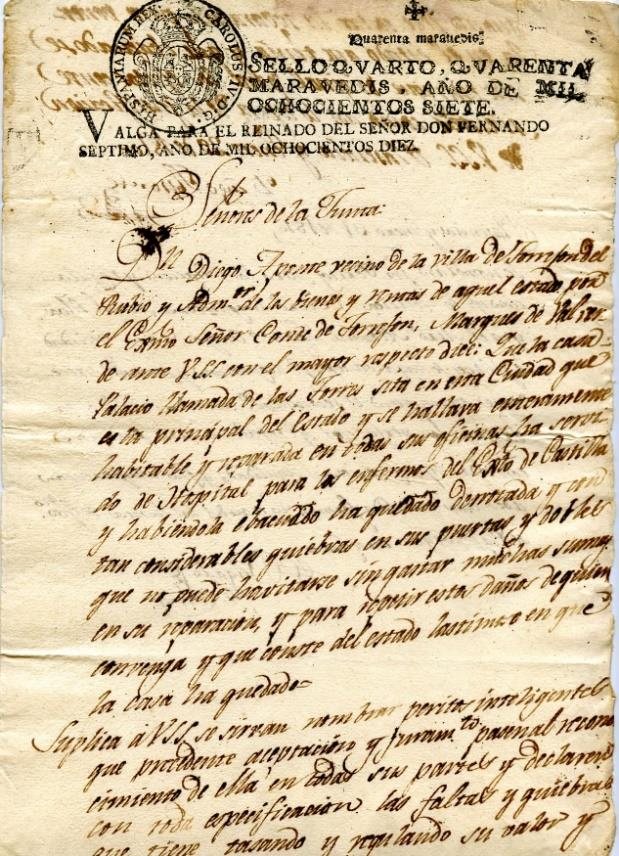 Quarenta maravedis.
HISPANIARUM REX CAROLUS IV D G
SELLO QVARTO, QVARENTA
MARAVEDIS, AÑO DE MIL
OCHOCIENTOS SIETE.
VALGA PARA EL REINADO DEL SEÑOR DON FERNANDO
SEPTIMO, AÑO DE MIL OCHOCIENTOS DIEZ.
Señores de la Junta
Diego Aponte vecino de la villa de Torrejon del
Rubio y Adm.or de los bienes y rentas de aquel estado por
el Exmo Señor Conde de Torrejon, Marques de Valver
de ante VSS con el mayor respecto dice: Que la casa
Palacio llamada de las Torres sita en esta Ciudad que
es la principal del Estado y se hallava enteramente
habitable y reparada en todas sus oficinas ha servi
do de Hospital para los enfermos del Exto de Castilla
y habiendola ebacuado ha quedado y con
tan considerables quiebras en sus puertas y
que no puede havitarse sin gastar muchas sumas
en su reparacion, y para estos daños de quien
convenga y que conste del estado lastimoso en que
la casa ha quedado
Suplica á VSS se sirvan nombrar peritos inteligentes
que precidente aceptacion y juram.to pasen al recono
cimiento de ella en todas sus partes y declaren
con toda especificacion las faltas y quiebras
que tiene tasando y regulando su valor y